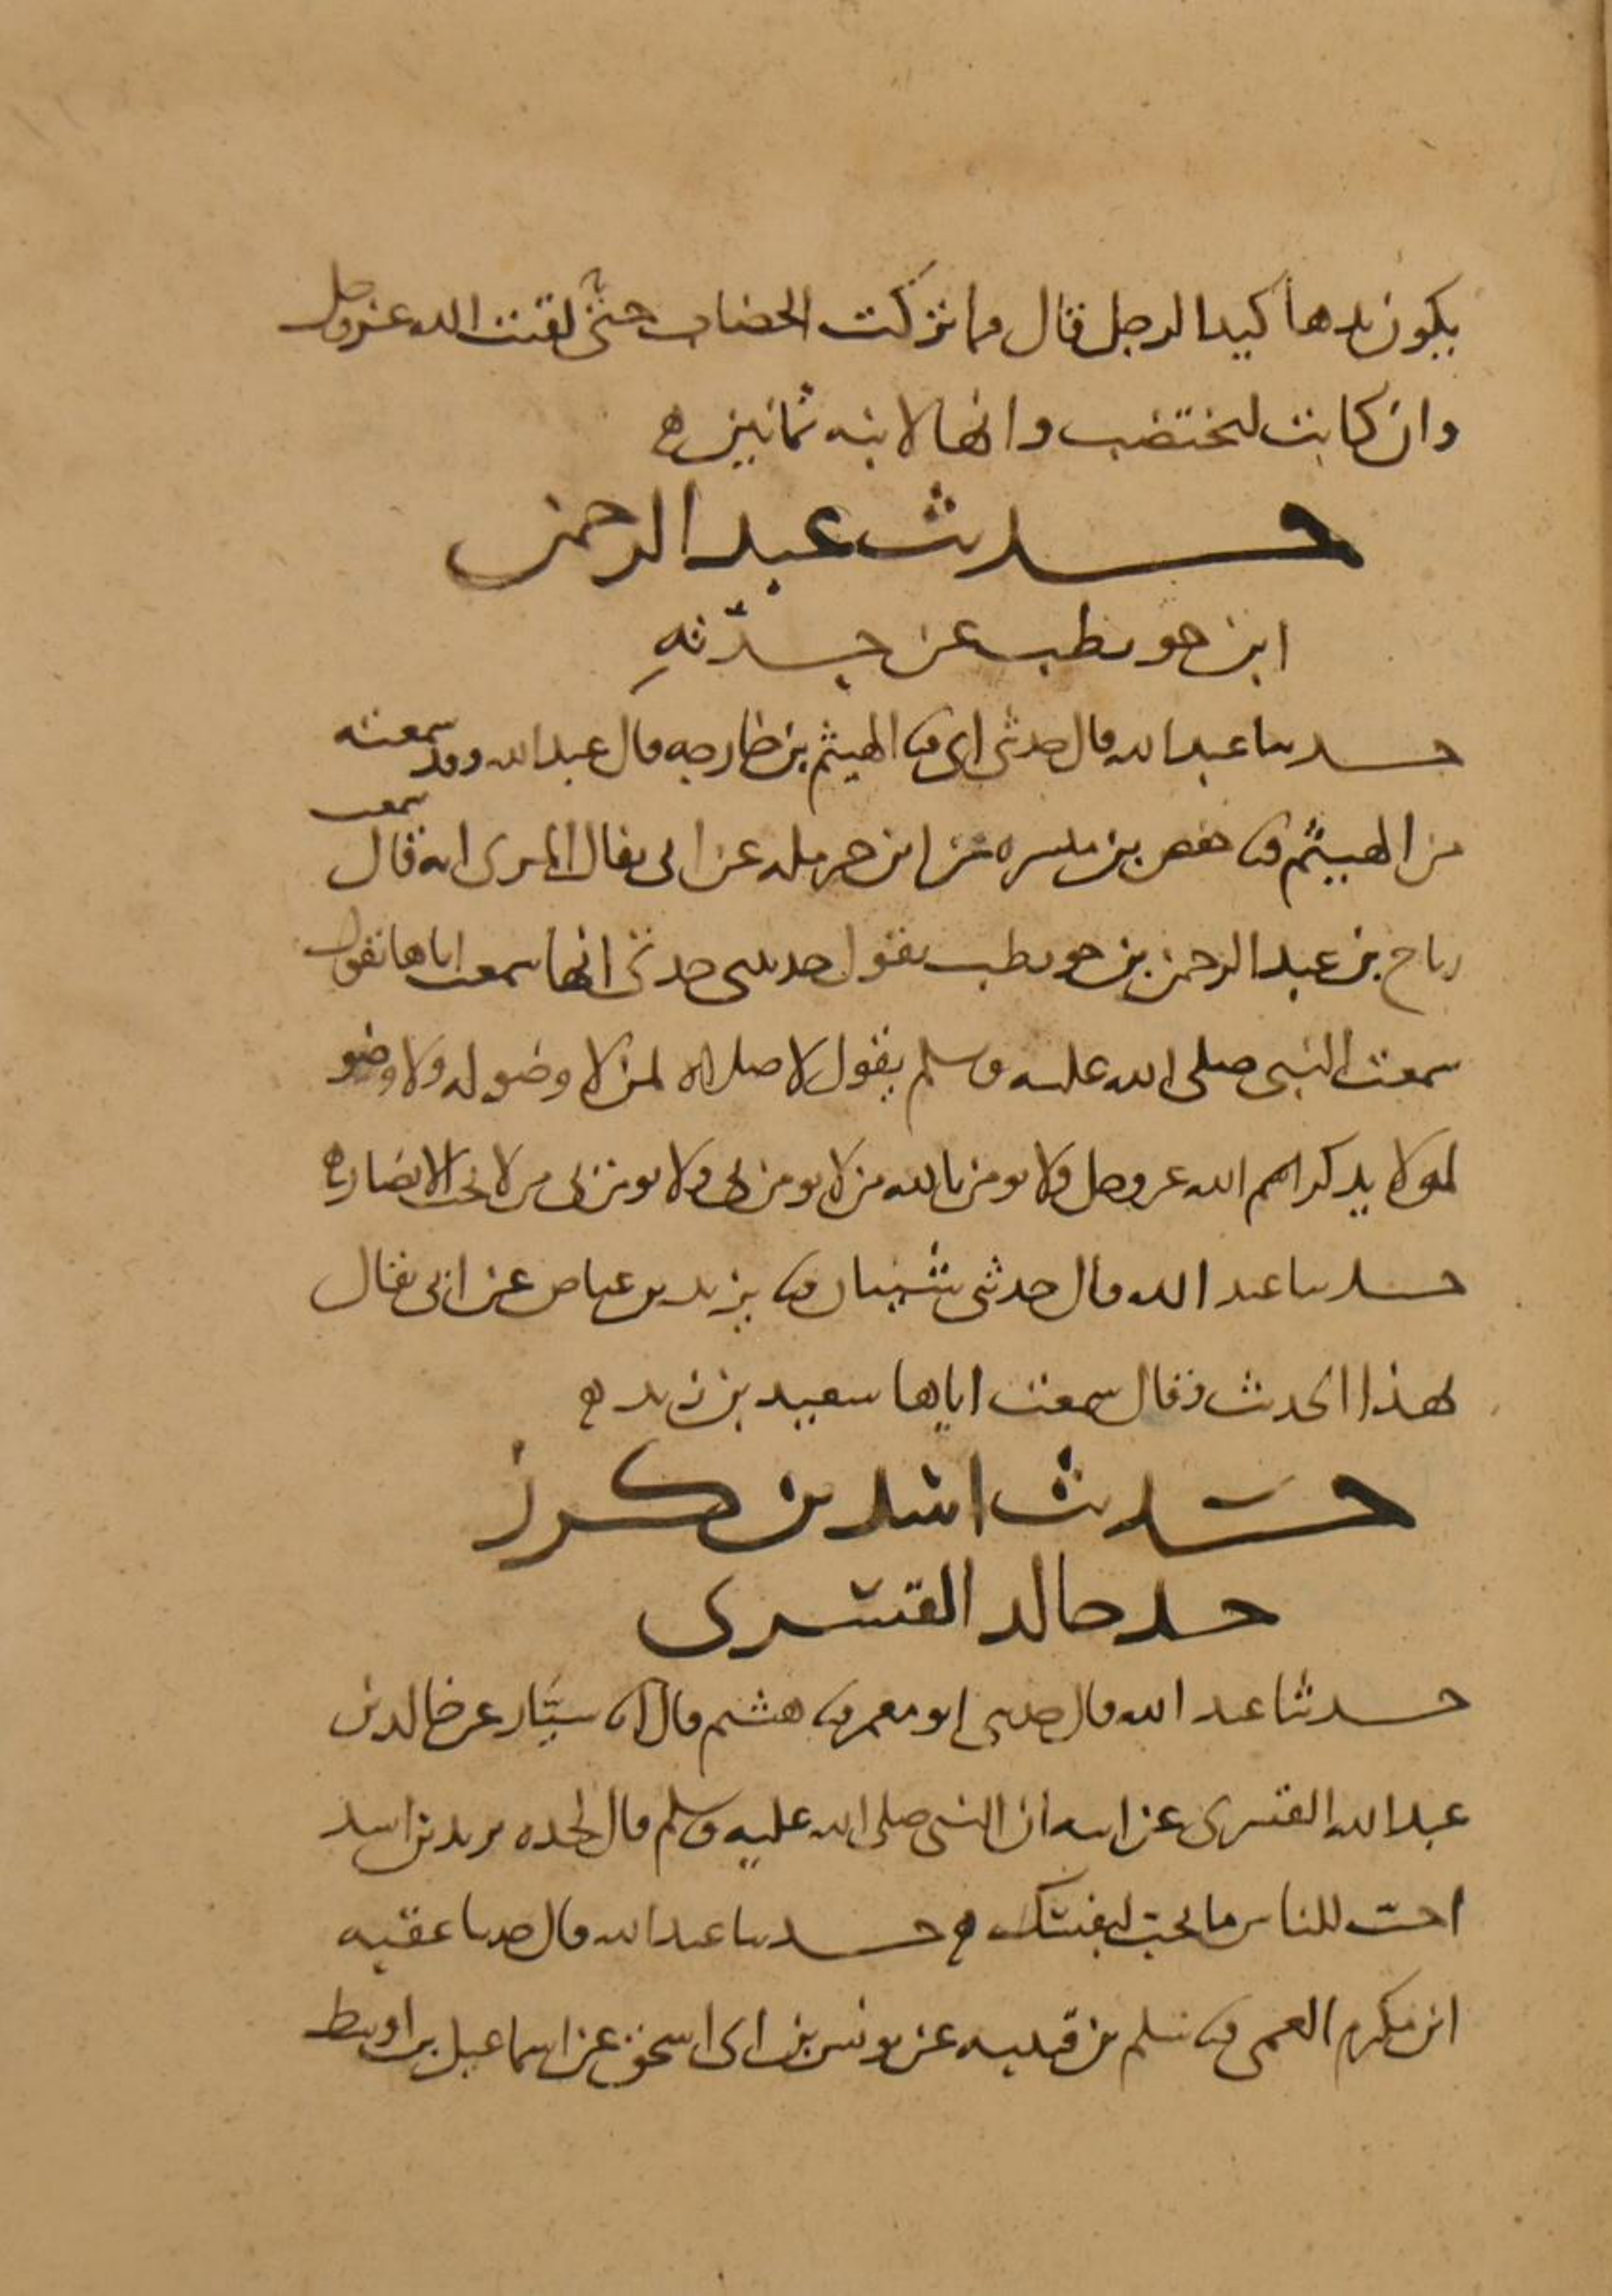 يكون يدها كيد الرجل قال فما تركت الخضاب حتى لقيت الله عز وجل
وان كانت لتختضب وانها لابنه ثمانين ه
حديث عبد الرحمن
ابن حويطب عن جدته
حدثنا عبد الله قال حدثني ابي ثنا الهيثم بن خارجه قال عبد الله وقد سمعته
من الهيثم ثنا حفص بن ميسره عن ابن حرمله عن ابي ثفال المري انه قال سمعت
رباح بن عبد الرحمن بن حويطب يقول حدثتني جدتي انها سمعت اباها تقول
سمعت النبي صلى الله عليه وسلم يقول لا صلاه لمن لا وضو له ولا وضو
لمن لا يذكر اسم الله عز وجل ولا يومن بالله من لا يومن بي ولا يومن بي من لا يحب الانصار ه
حدثنا عبد الله قال حدثني شيبان ثنا يزيد بن عياض عن ابي ثفال
بهذا الحديث فقال سمعت اباها سعيد بن زيد ه
حديث اسد بن كرز
جد خالد القسري
حدثنا عبد الله قال حدثني ابو معمر ثنا هشيم قال انا سيار عن خالد بن
عبد الله القسري عن ابيه ان النبي صلى الله عليه وسلم قال لجده يزيد بن اسد
احب للناس ما تحب لنفسك ه حدثنا عبد الله قال حدثنا عقبه
ابن مكرم العمي ثنا سلم بن قتيبه عن يونس بن ابي اسحق عن اسماعيل بن اوسط